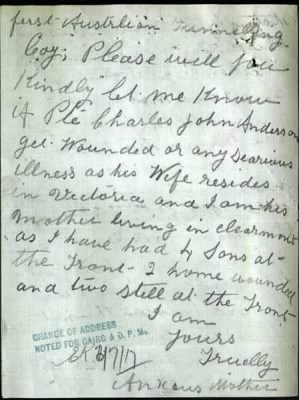 first Australian Tunnelling
Coy; Please will you
Kindly let me Know
if Pte Charles John Anderson
get Wounded or any Searious
illness as his Wife resides
in Victoria and I am his
mother living in clearmont
as I have had 4 Sons at
the Front - 2 home wounded
and two still at the Front
I am
yours
Truelly
Anxous Mother
CHANGE OF ADDRESS
NOTED FOR CAIRO & D. P. Ms.